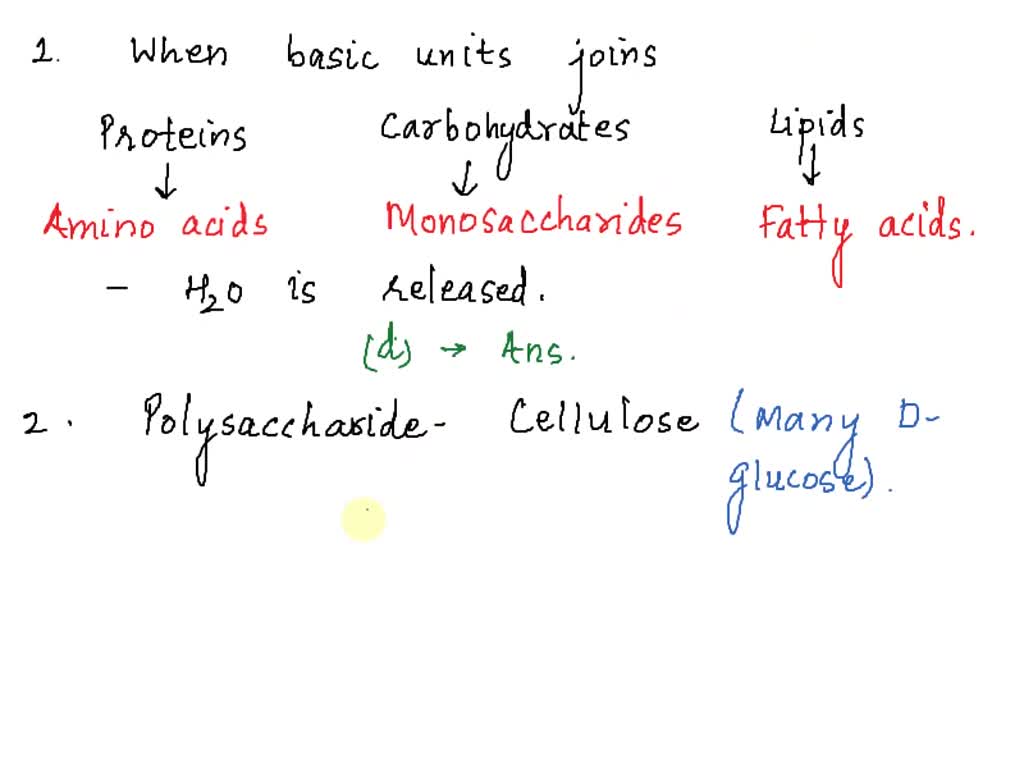 1. When basic units joins
Proteins Carbohydrates Lipids
↓ ↓ ↓
Amino acids Monosaccharides Fatty acids.
- H₂O is released.
(d) → Ans.
2. Polysaccharide- Cellulose (Many D-
glucose).